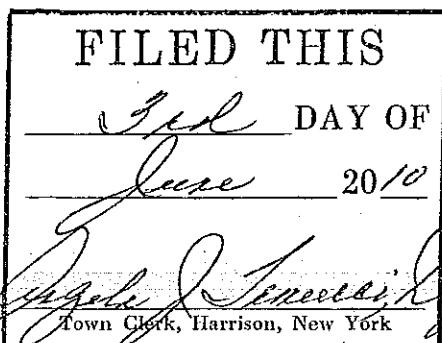 FILED THIS
3rd DAY OF
June 2010
Angela J
Town Clerk, Harrison, New York